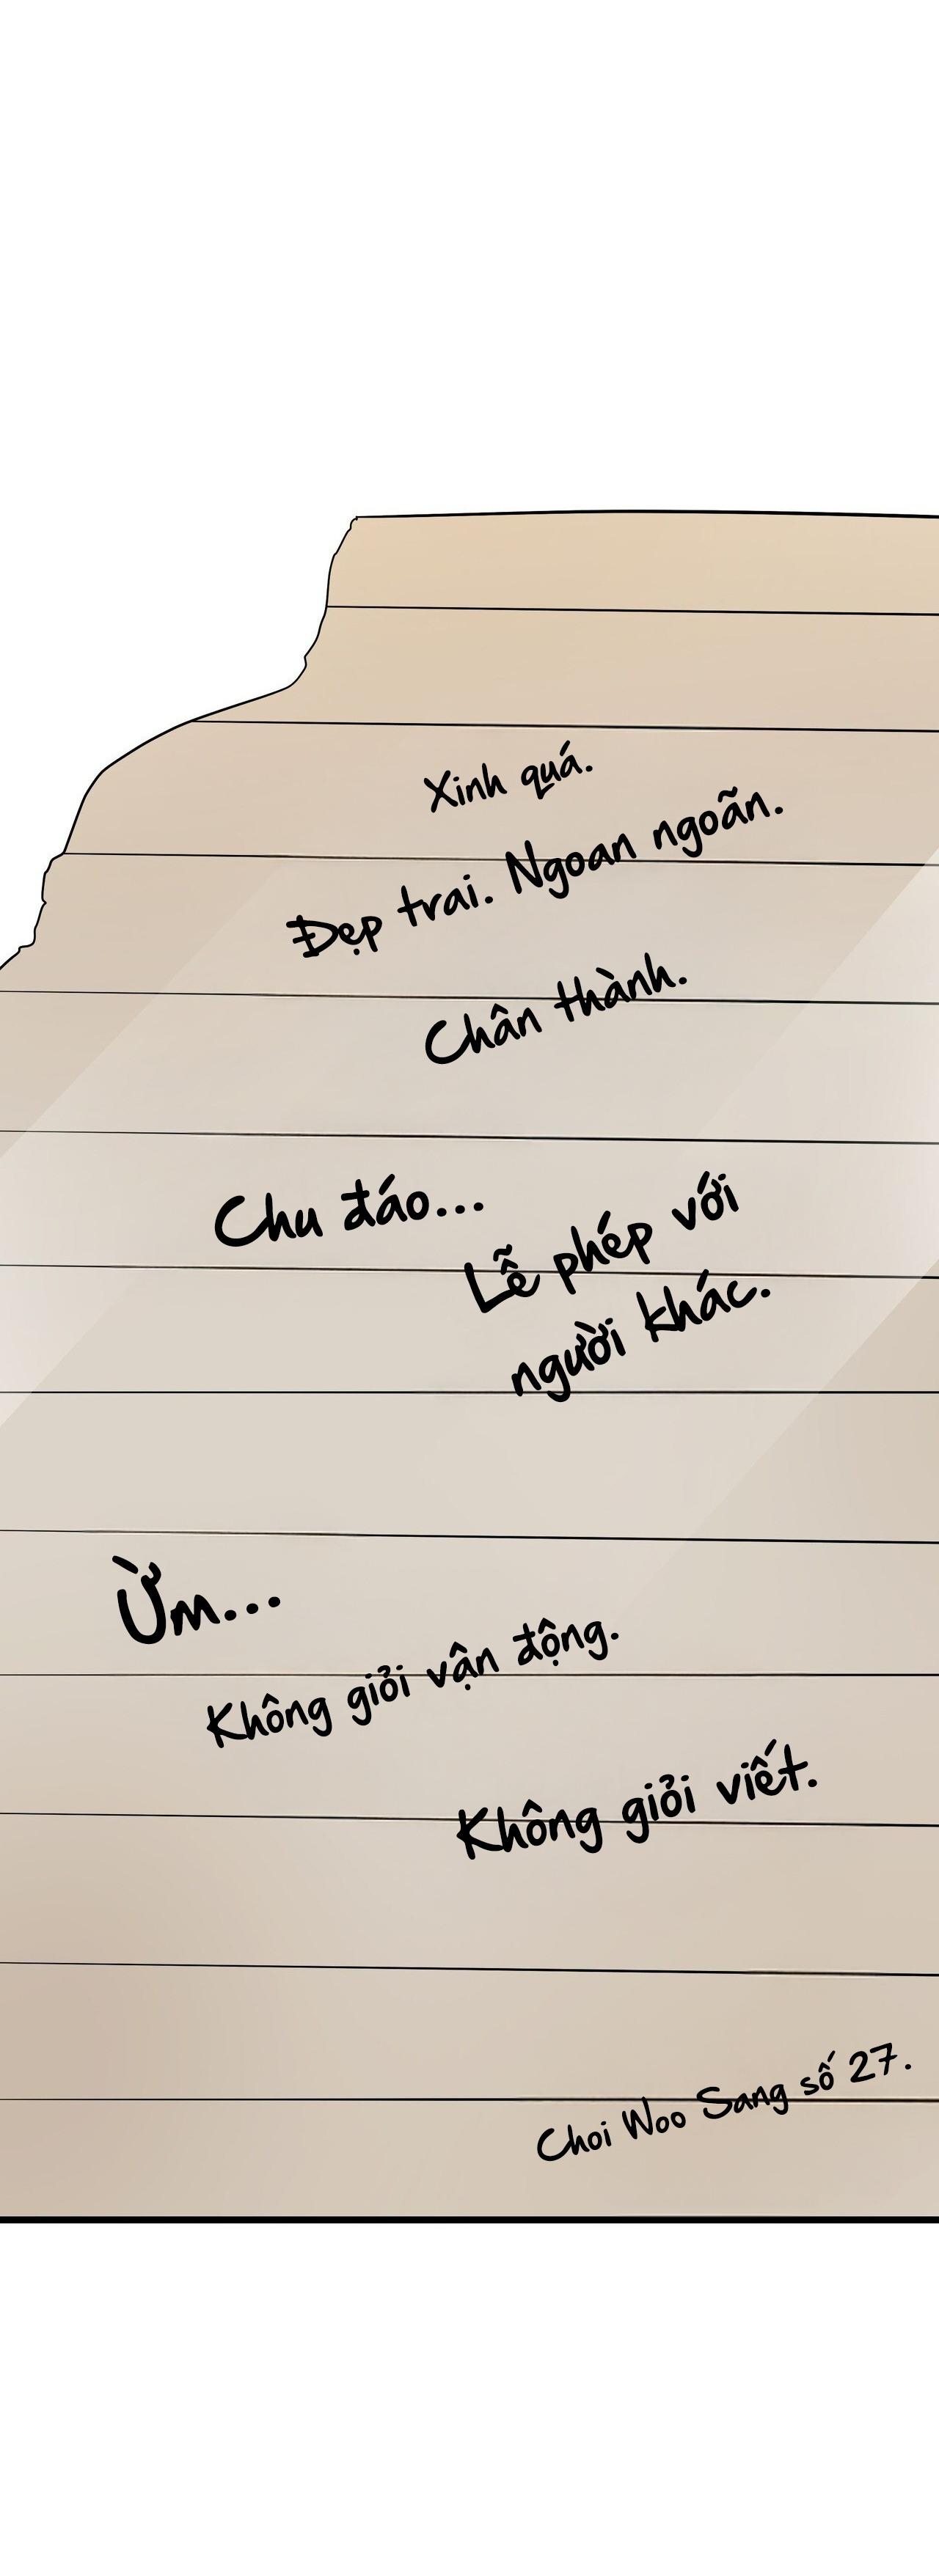 Xinh quá.
Đẹp trai. Ngoan ngoãn.
Chân thành.
Chu đáo...
Lễ phép với
người khác.
Ừm...
Không giỏi vận động.
Không giỏi viết.
Choi Woo Sang số 27.